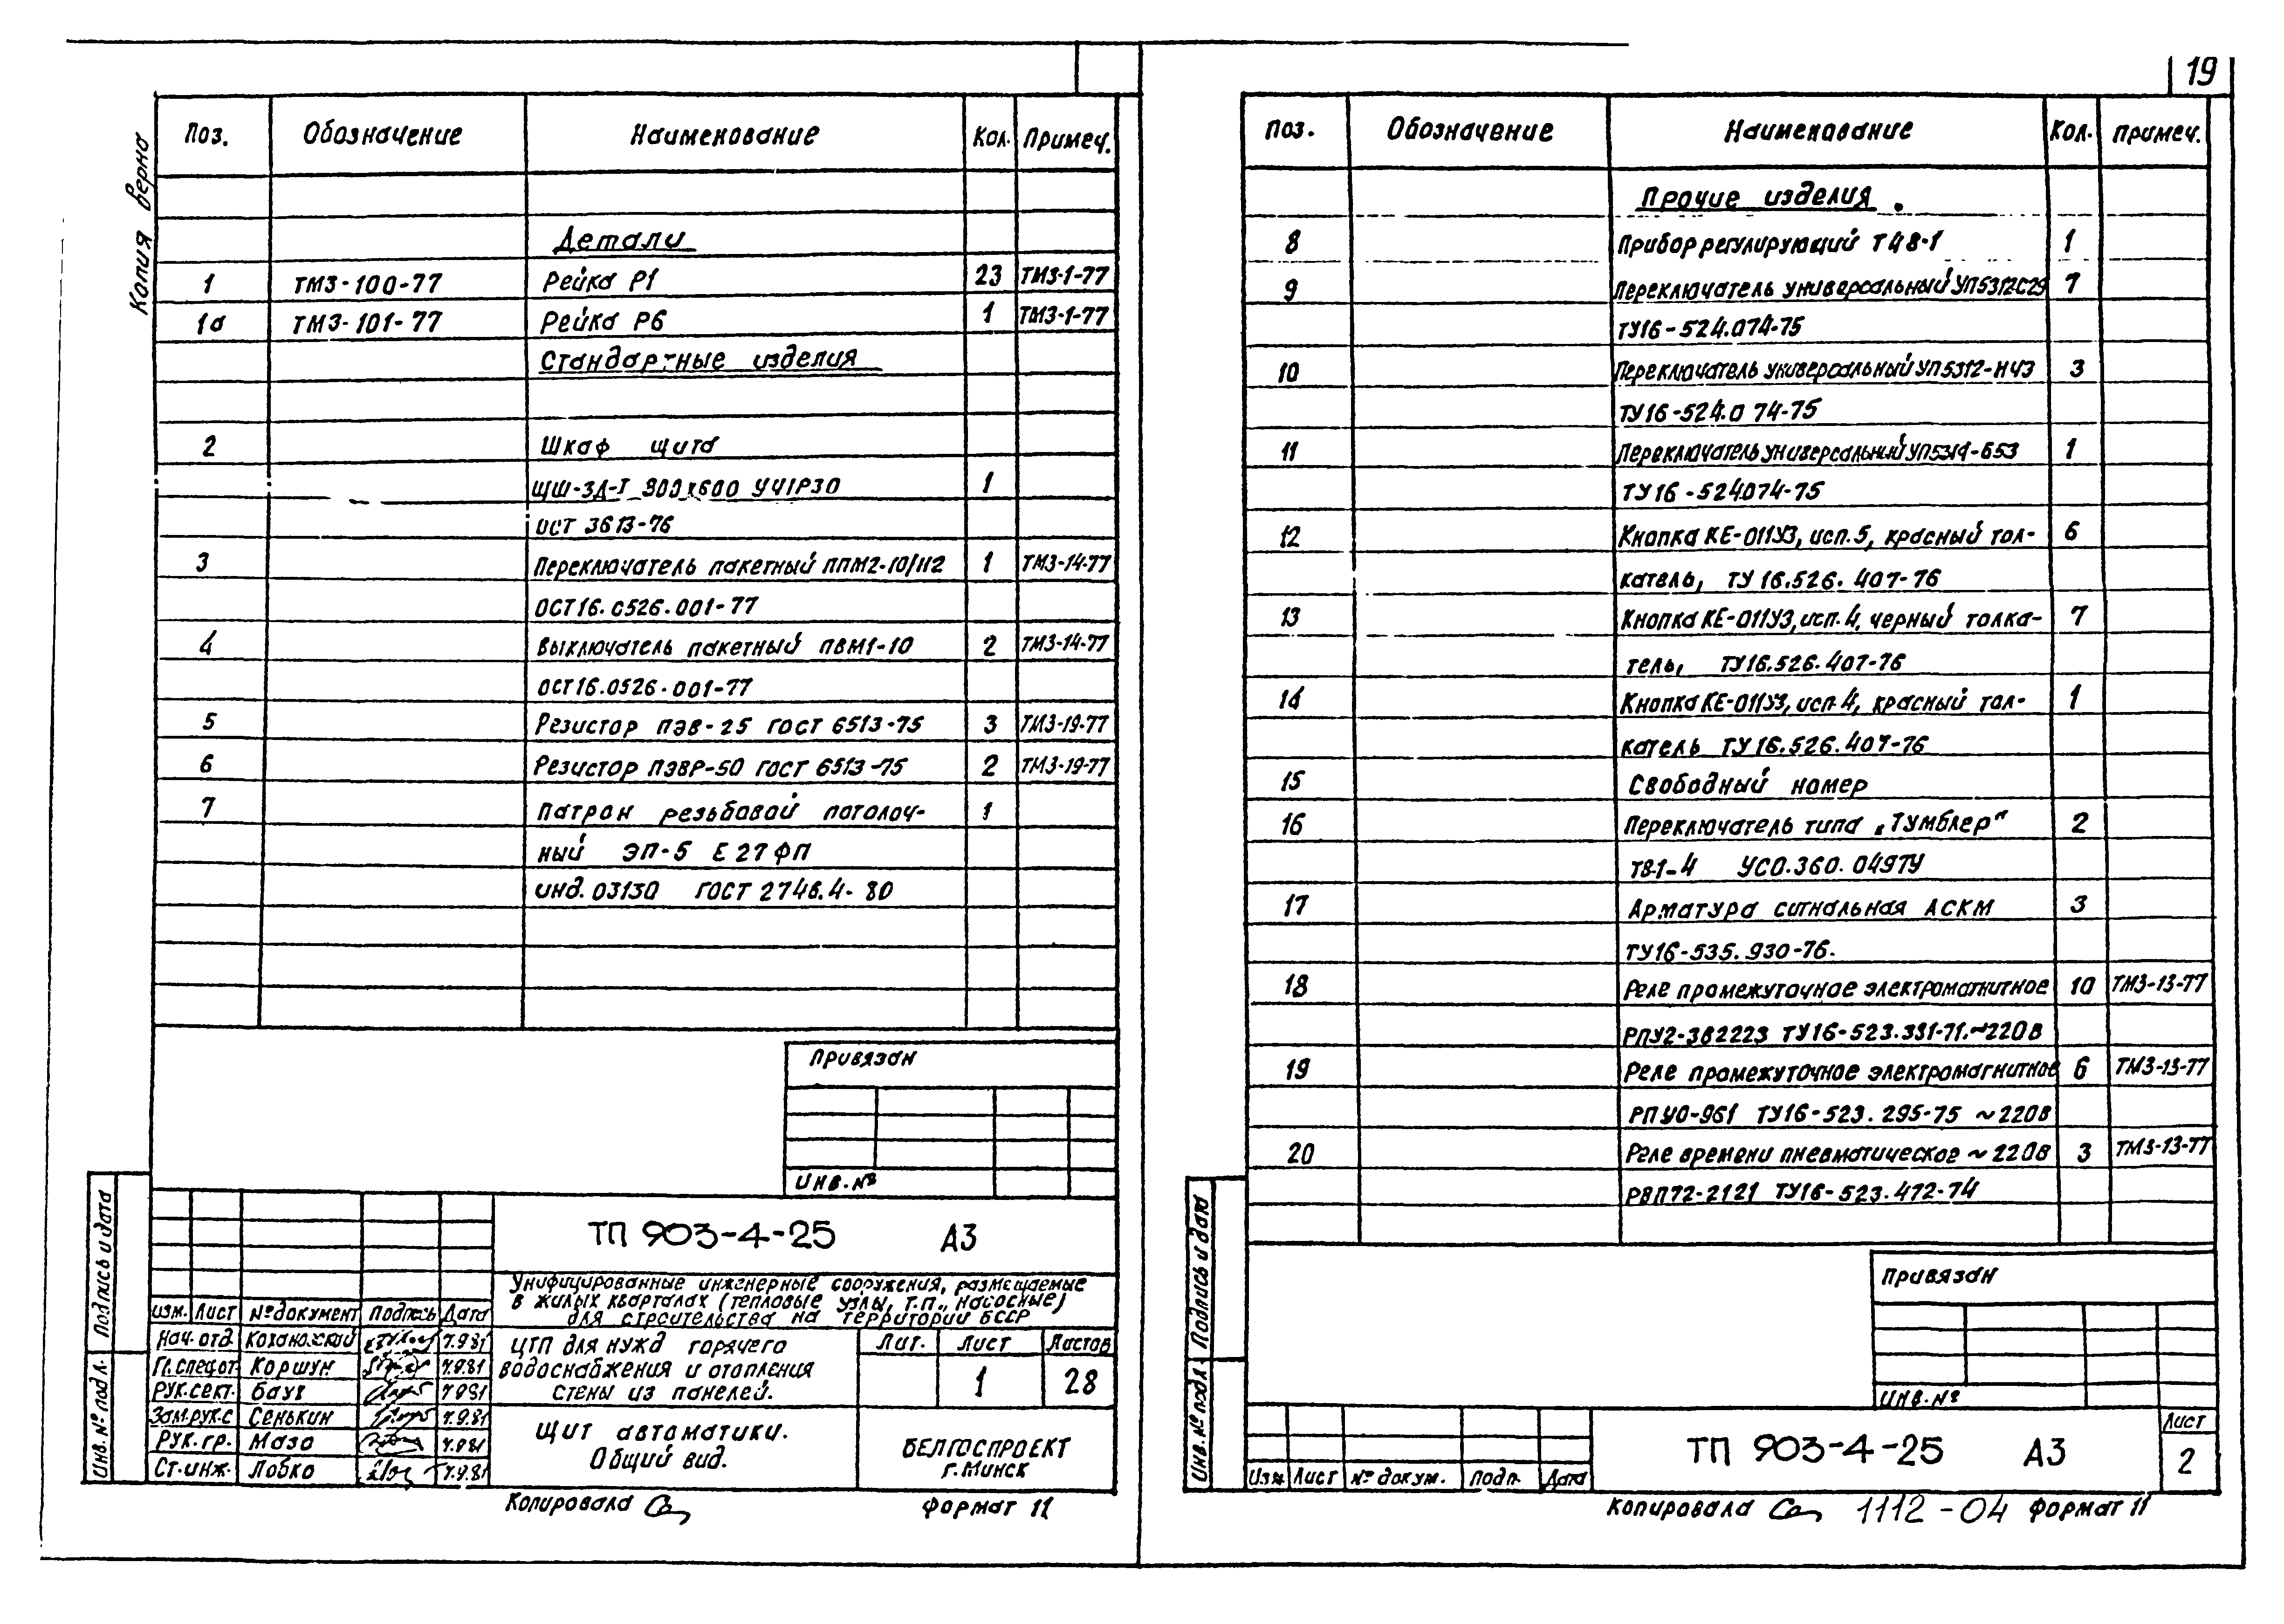 Копия верно
Поз. Обозначение Наименование Кол. Примеч.
Детали
1 ТМ3-100-77 Рейка Р1 23 ТМ3-1-77
1а ТМ3-101-77 Рейка Р6 1 ТМ3-1-77
Стандартные изделия
2 Шкаф щита
ЩШ-ЗД-I 800х600 УЧ1Р30 1
ОСТ 3613-76
3 Переключатель пакетный ППМ2-10/Н2 1 ТМ3-14-77
ОСТ16.0526.001-77
4 Выключатель пакетный ПВМ1-10 2 ТМ3-14-77
ОСТ16.0526.001-77
5 Резистор ПЭВ-25 ГОСТ 6513-75 3 ТМ3-19-77
6 Резистор ПЭВР-50 ГОСТ 6513-75 2 ТМ3-19-77
7 Патрон резьбовой потолоч- 1
ный ЭП-5 Е27ФП
инд. 03130 ГОСТ 2746.4-80
Привязан
Инв. №
ТП 903-4-25 А3
Унифицированные инженерные сооружения, размещаемые
в жилых кварталах (тепловые узлы, т.п., насосные)
для строительства на территории БССР
Изм. Лист № документ Подпись Дата
Нач. отд. Кохановский 7.9.81
Гл.спец.от. Коршун 7.9.81
Рук.сект. Баух 7.9.81
Зам.рук.с Сенькин 7.9.81
Рук.гр. Мазо 7.9.81
Ст.инж. Лобко 7.9.81
ЦТП для нужд горячего
водоснабжения и отопления
стены из панелей.
Лит. Лист Листов
1 28
Щит автоматики.
Общий вид.
БЕЛГОСПРОЕКТ
г. Минск
Подпись и дата
Инв. № подл.
Копировала Формат 11
19
Поз. Обозначение Наименование Кол. Примеч.
Прочие изделия.
8 Прибор регулирующий Т48-1 1
9 Переключатель универсальный УП5312С29 7
ТУ16-524.074-75
10 Переключатель универсальный УП5312-Н43 3
ТУ16-524.074-75
11 Переключатель универсальный УП5314-Б53 1
ТУ16-524074-75
12 Кнопка КЕ-011У3, исп. 5, красный тол- 6
катель, ТУ 16.526.407-76
13 Кнопка КЕ-011У3, исп. 4, черный толка- 7
тель, ТУ16.526.407-76
14 Кнопка КЕ-011У3, исп. 4, красный тол- 1
катель ТУ 16.526.407-76
15 Свободный номер
16 Переключатель типа „Тумблер“ 2
ТВ1-4 УСО.360.049ТУ
17 Арматура сигнальная АСКМ 3
ТУ16-535.930-76.
18 Реле промежуточное электромагнитное 10 ТМ3-13-77
РПУ2-362223 ТУ16-523.331-71.~220В
19 Реле промежуточное электромагнитное 6 ТМ3-13-77
РПУ0-961 ТУ16-523.295-75 ~220В
20 Реле времени пневматическое ~220В 3 ТМ3-13-77
РВП72-2121 ТУ16-523.472-74
Привязан
Инв. №
ТП 903-4-25 А3
Лист
2
Изм Лист № докум. Подп. Дата
Подпись и дата
Инв. № подл.
Копировала 1112-04 Формат 11